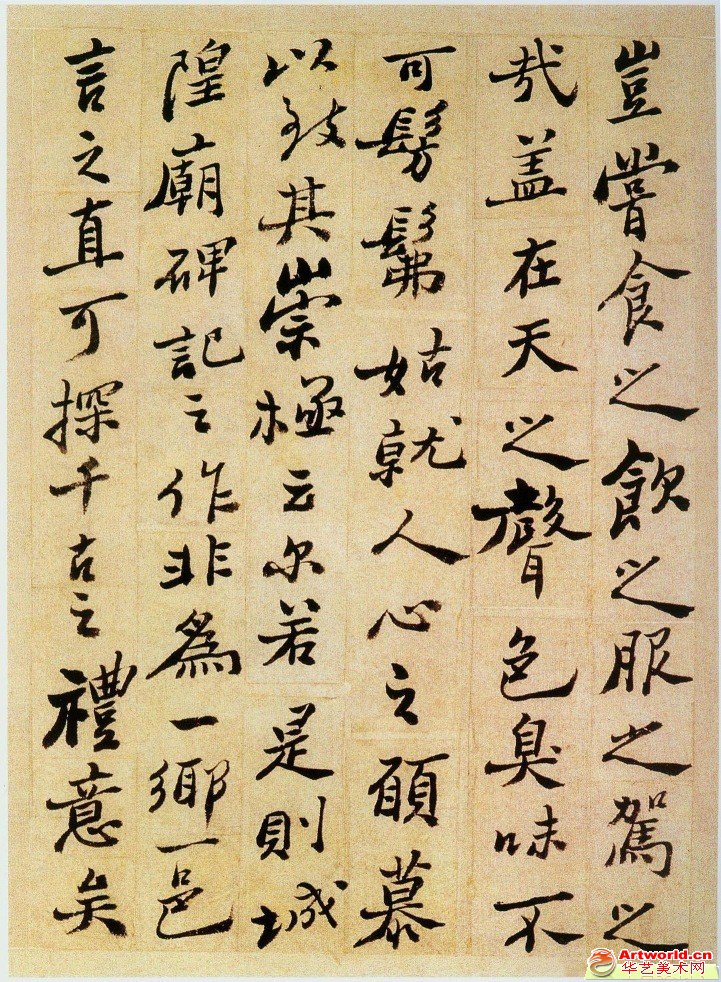 豈嘗食之飲之服之駕之
哉盖在天之聲色臭味不
可髣髴姑就人心之願慕
以致其崇極云尔若是則城
隍廟碑記之作非爲一鄉一邑
言之直可探千古之禮意矣
Artworld.cn
华艺美术网